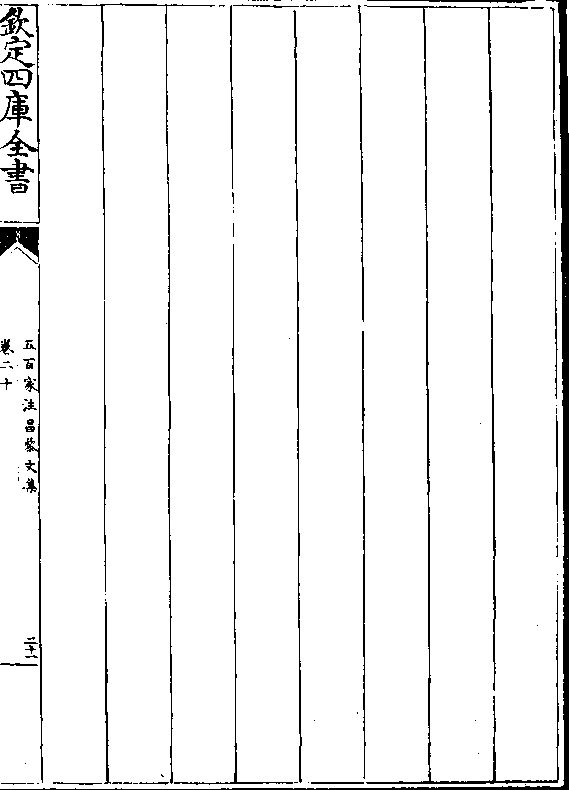 欽定四庫全書
五百家注昌黎文集
卷二十
二十一